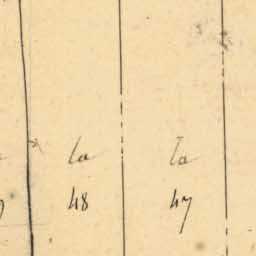 la la
48 47